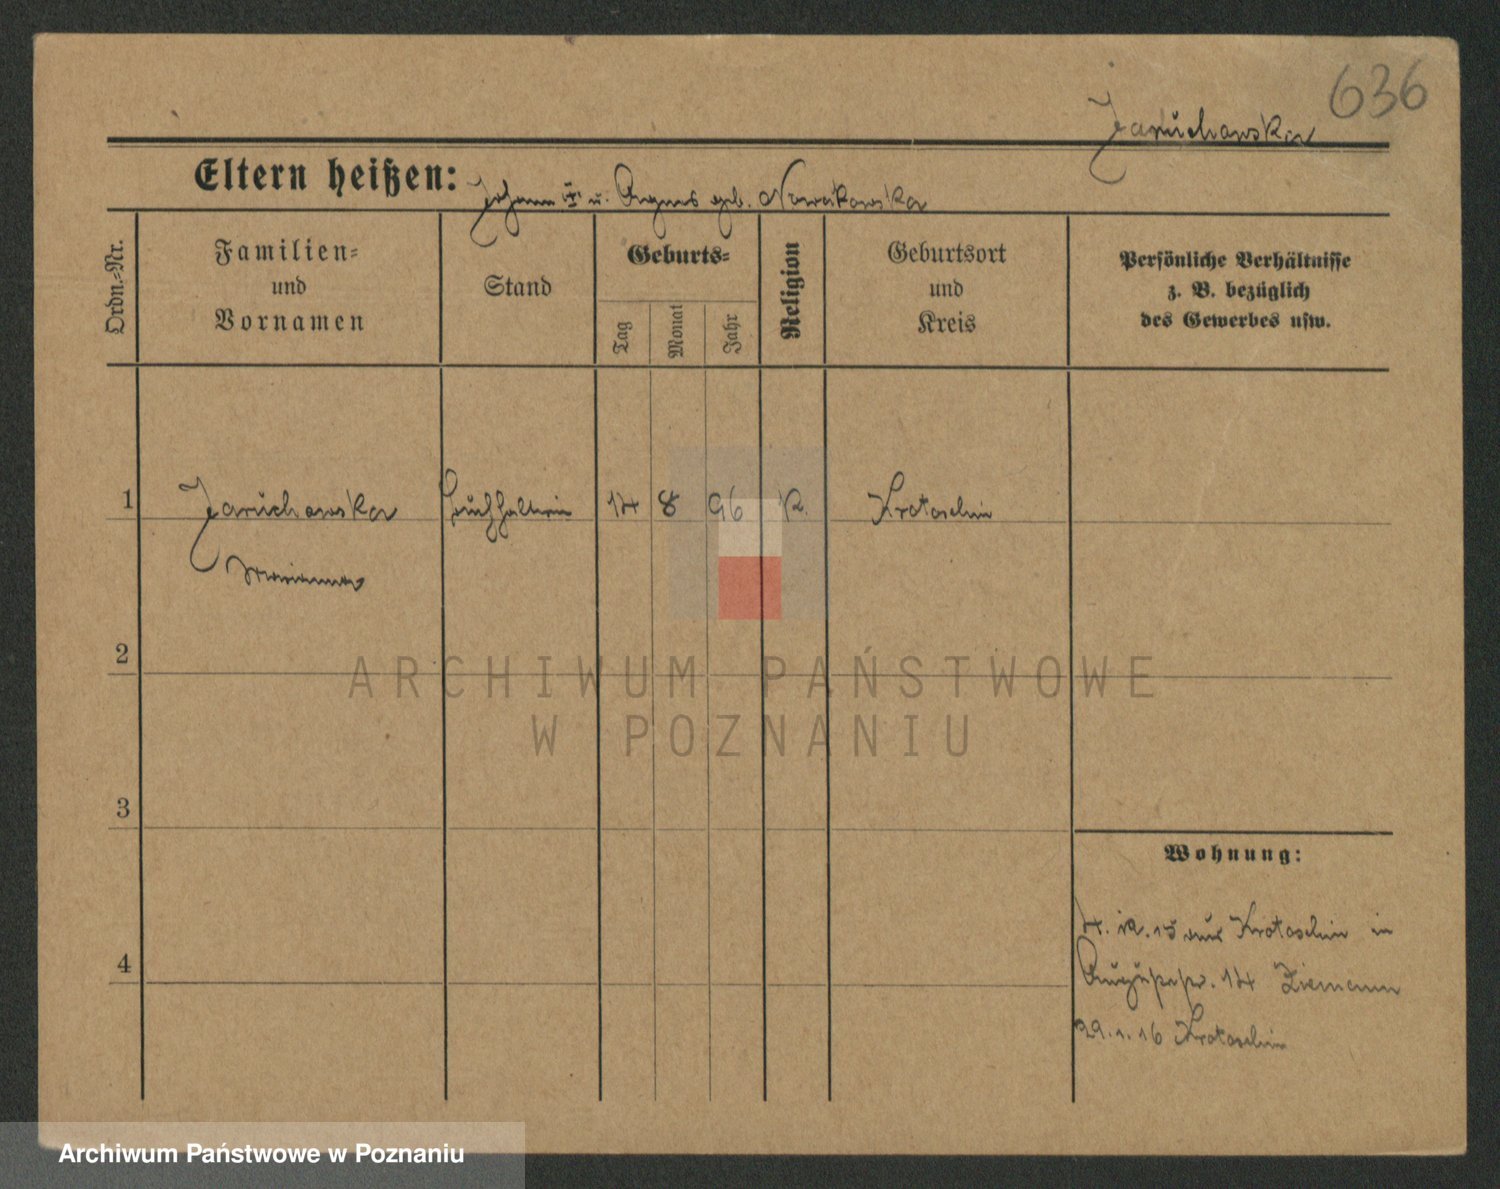 636
Jaruchowska
Eltern heißen: Johann u. Agnes geb. Nowakowska
Ordn.-Nr.
Familien-
und
Vornamen
Stand
Geburts-
Tag
Monat
Jahr
Religion
Geburtsort
und
Kreis
Persönliche Verhältnisse
z. B. bezüglich
des Gewerbes usw.
1 Jaruchowska Buchhalterin 14 8 96 K. Krotoschin
Marianna
2
3
4
Wohnung:
4. 12. 15 aus Krotoschin in
Augustastr. 14 Ziemann
29. 1. 16 Krotoschin
ARCHIWUM PAŃSTWOWE
W POZNANIU
Archiwum Państwowe w Poznaniu